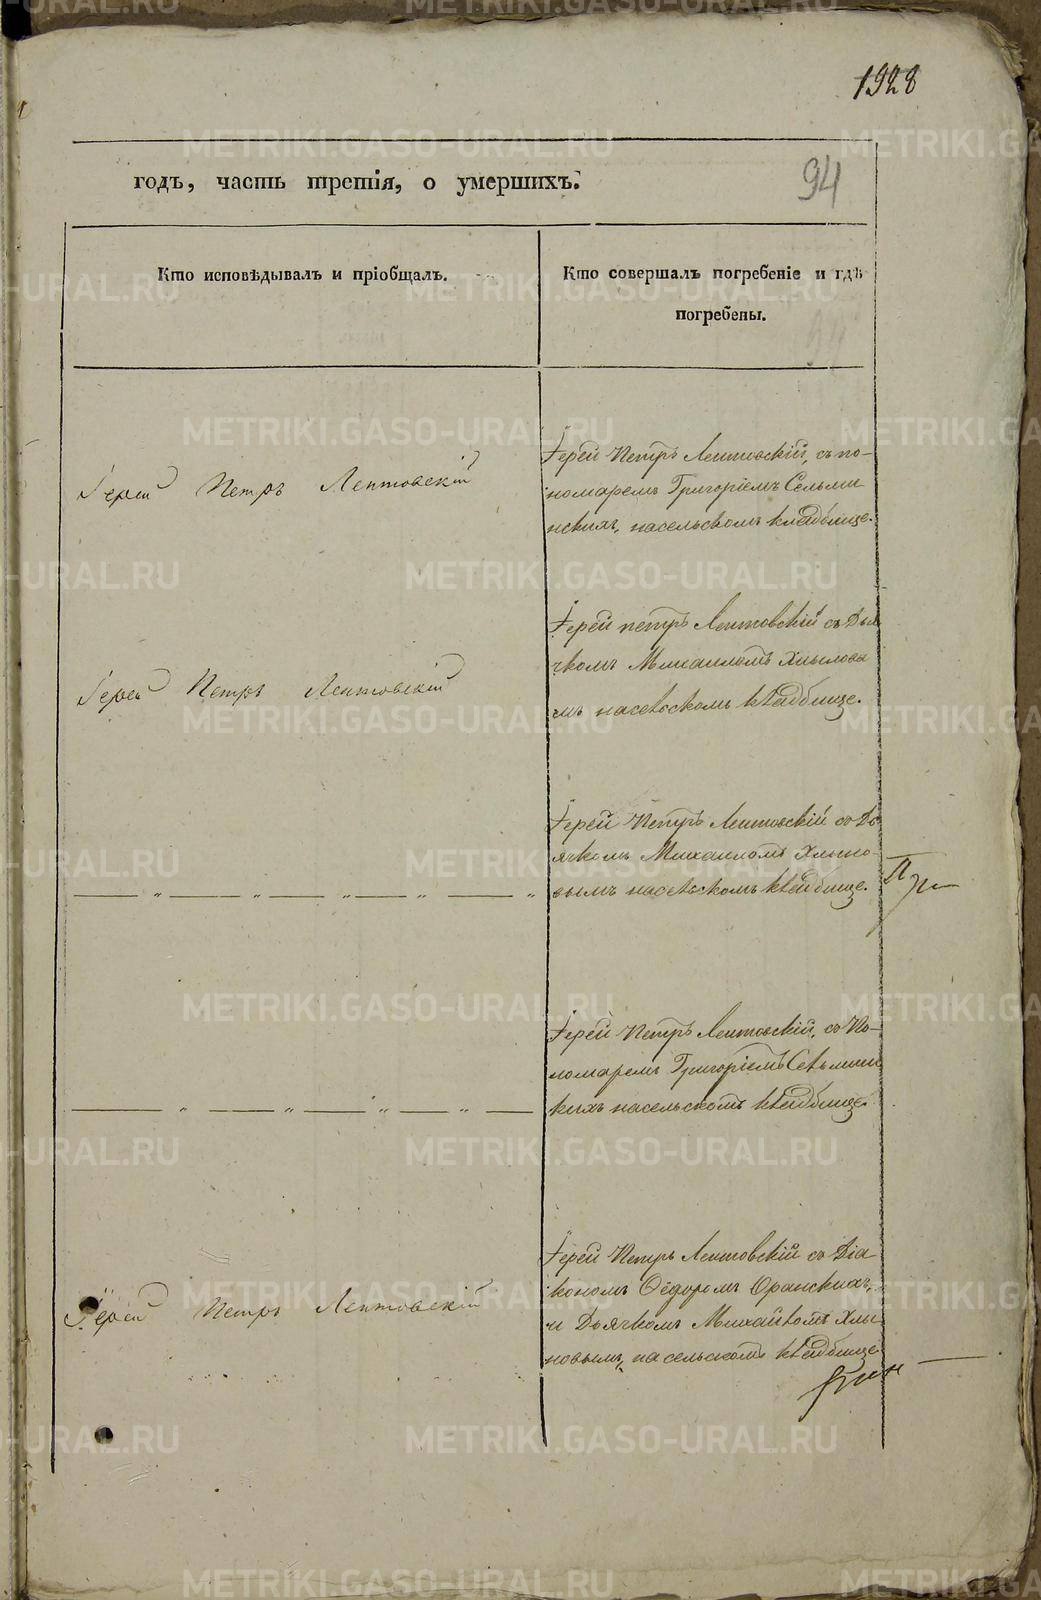 1928
годъ, часть третія, о умершихъ.
94
Кто исповѣдывалъ и пріобщалъ.
Кто совершалъ погребеніе и гдѣ
погребены.
Іерей Петръ Лептовскій
Іерей Петръ Лептовскій, съ по-
номаремъ Григоріемъ Сельми
нскихъ, насельскомъ кладбище.
Іерей Петръ Лептовскій
Іерей петръ Лептовскій съ Дья
чкомъ Михаиломъ Хлынова
мъ насельскомъ кладбище.
Іерей Петръ Лептовскій съ Дь
ячкомъ Михаиломъ Хлыно-
вымъ насельскомъ кладбище.
Іерей Петръ Лептовскій, съ По-
номаремъ Григоріемъ Сельмин
скихъ насельскомъ кладбище.
Іерей Петръ Лептовскій
Іерей Петръ Лептовскій съ Діа
кономъ Ѳедоромъ Оранскихъ,
и Дьячкомъ Михаиломъ Хлы
новымъ, на сельскомъ кладбище
METRIKI.GASO-URAL.RU